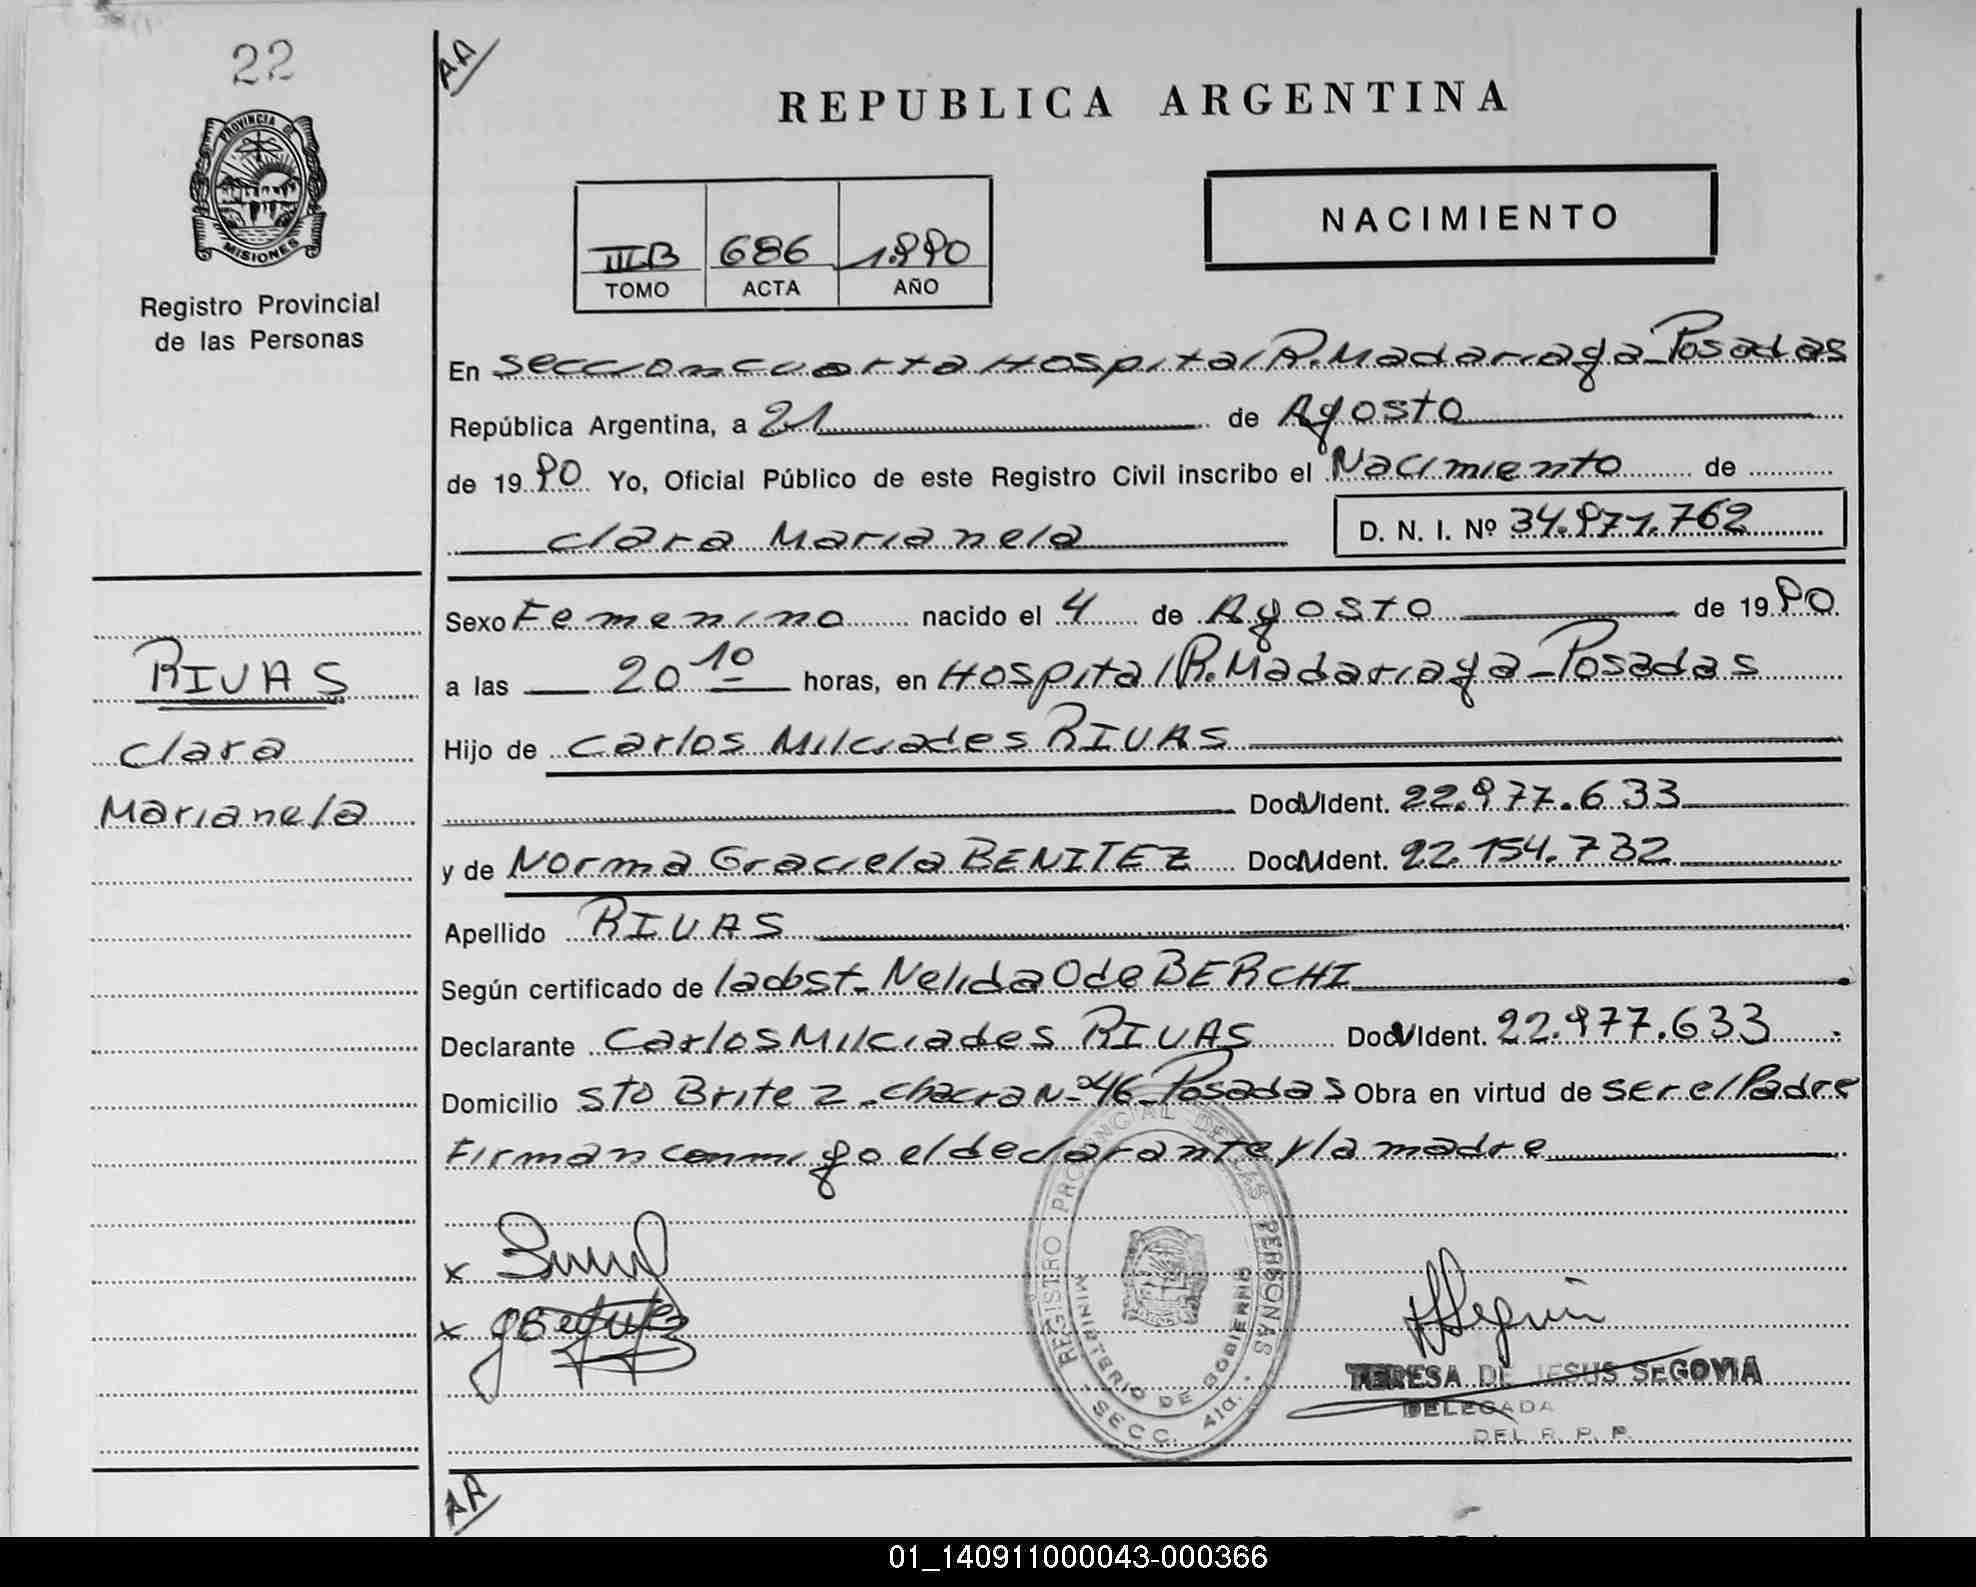 22
AA
PROVINCIA DE
MISIONES
Registro Provincial
de las Personas
REPUBLICA ARGENTINA
NACIMIENTO
III B 686 1.990
TOMO ACTA AÑO
En seccion cuarta Hospital R. Madariaga - Posadas
República Argentina, a 21 de Agosto
de 1990 Yo, Oficial Público de este Registro Civil inscribo el Nacimiento de
Clara Marianela D. N. I. Nº 34.971.762
Sexo Femenino nacido el 4 de Agosto de 1990
a las 20 10 horas, en Hospital R. Madariaga - Posadas
RIVAS
Hijo de Carlos Milciades RIVAS
Clara
Doc. Ident. 22.977.633
Marianela
y de Norma Graciela BENITEZ Doc. Ident. 22.154.732
Apellido RIVAS
Según certificado de la obst. Nelida O de BERCHI
Declarante Carlos Milciades RIVAS Doc. Ident. 22.977.633
Domicilio Sto Britez - chacra Nº 46 - Posadas Obra en virtud de ser el Padre
Firman conmigo el declarante y la madre
REGISTRO PROVINCIAL DE LAS PERSONAS
MINISTERIO DE GOBIERNO
SECC. 4ta.
TERESA DE JESUS SEGOVIA
DELEGADA
DEL R. P. P.
AA
01_140911000043-000366